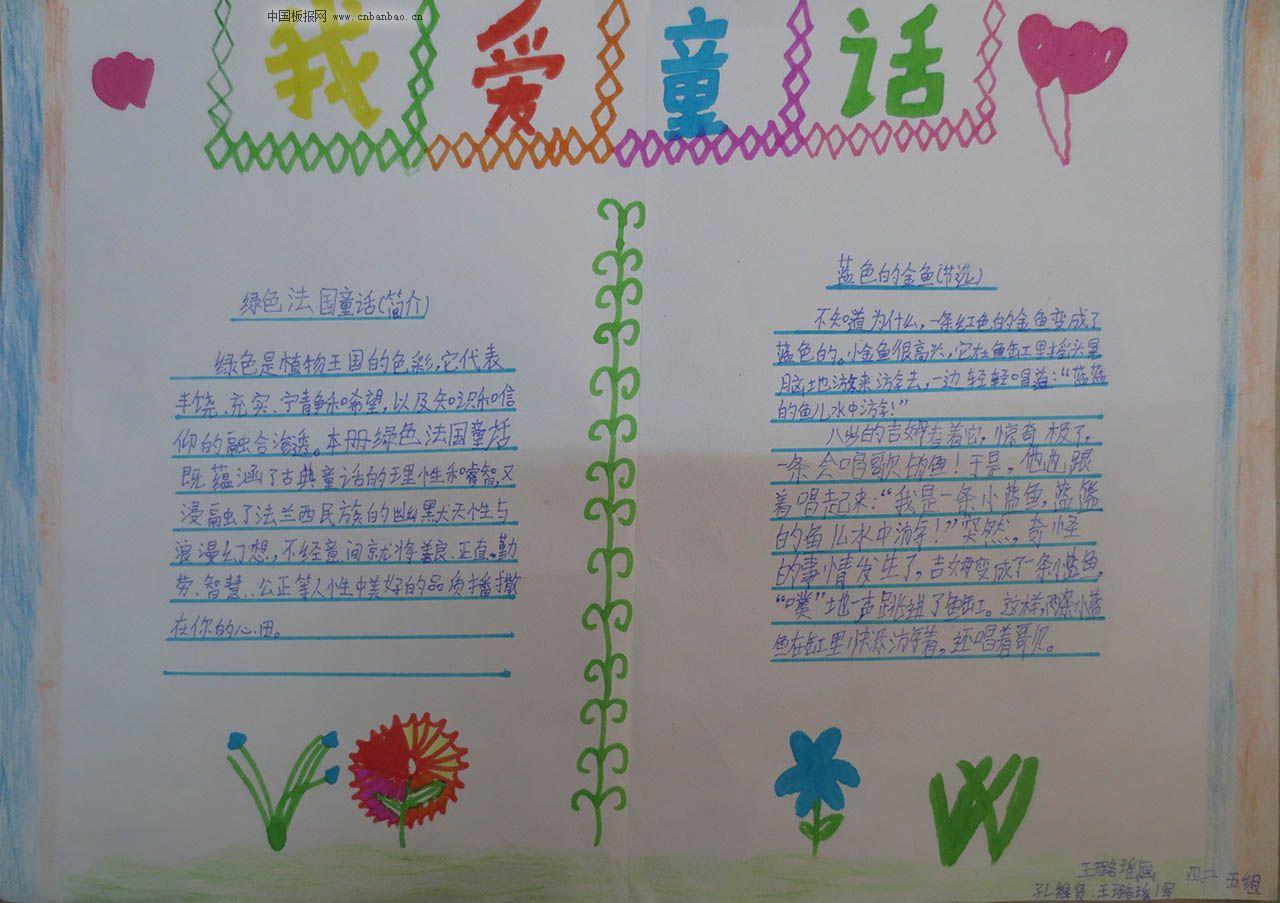 中国板报网 www.cnbanbao.cn
我爱童话
绿色法国童话(简介)
绿色是植物王国的色彩,它代表
丰饶、充实、宁静和希望,以及知识和信
仰的融合渗透。本册绿色法国童话
既蕴涵了古典童话的理性和睿智,又
浸融了法兰西民族的幽默天性与
浪漫幻想,不经意间就将善良、正直、勤
劳、智慧、公正等人性中美好的品质播撒
在你的心田。
蓝色的金鱼(节选)
不知道为什么,一条红色的金鱼变成了
蓝色的。小金鱼很高兴,它在鱼缸里摇头晃
脑地游来游去,一边轻轻唱着:“蓝蓝
的鱼儿水中游!”
八岁的吉姆看着它,惊奇极了,
一条会唱歌的鱼!于是,他也跟
着唱起来:“我是一条小蓝鱼,蓝蓝
的鱼儿水中游!”突然,奇怪
的事情发生了,吉姆变成了一条小蓝鱼,
“噗”地一声跳进了鱼缸。这样,两条小蓝
鱼在缸里快乐游着,还唱着歌儿。
王璐瑶画
王璐瑶写
五组